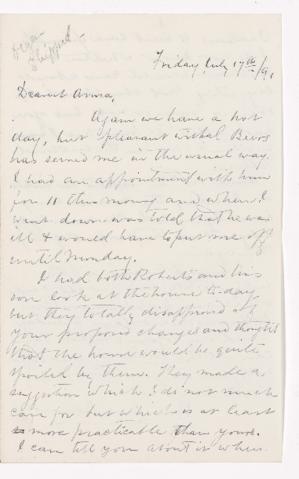 Friday, July 17th/91
Dearest Anna,
Again we have a hot
day, but pleasant withal
has served me in the usual way.
I had an appointment with him
for 11 this morng and when I
went down was told that he was
ill & would have to put me off
until Monday.
I had both Roberts and his
son look at the house to-day
but they totally disapproved of
your proposed changes and thought
that the house would be quite
spoiled by them. They made a
suggestion which I do not much
care for but which is at least
more practicable than yours.
I can tell you about it when